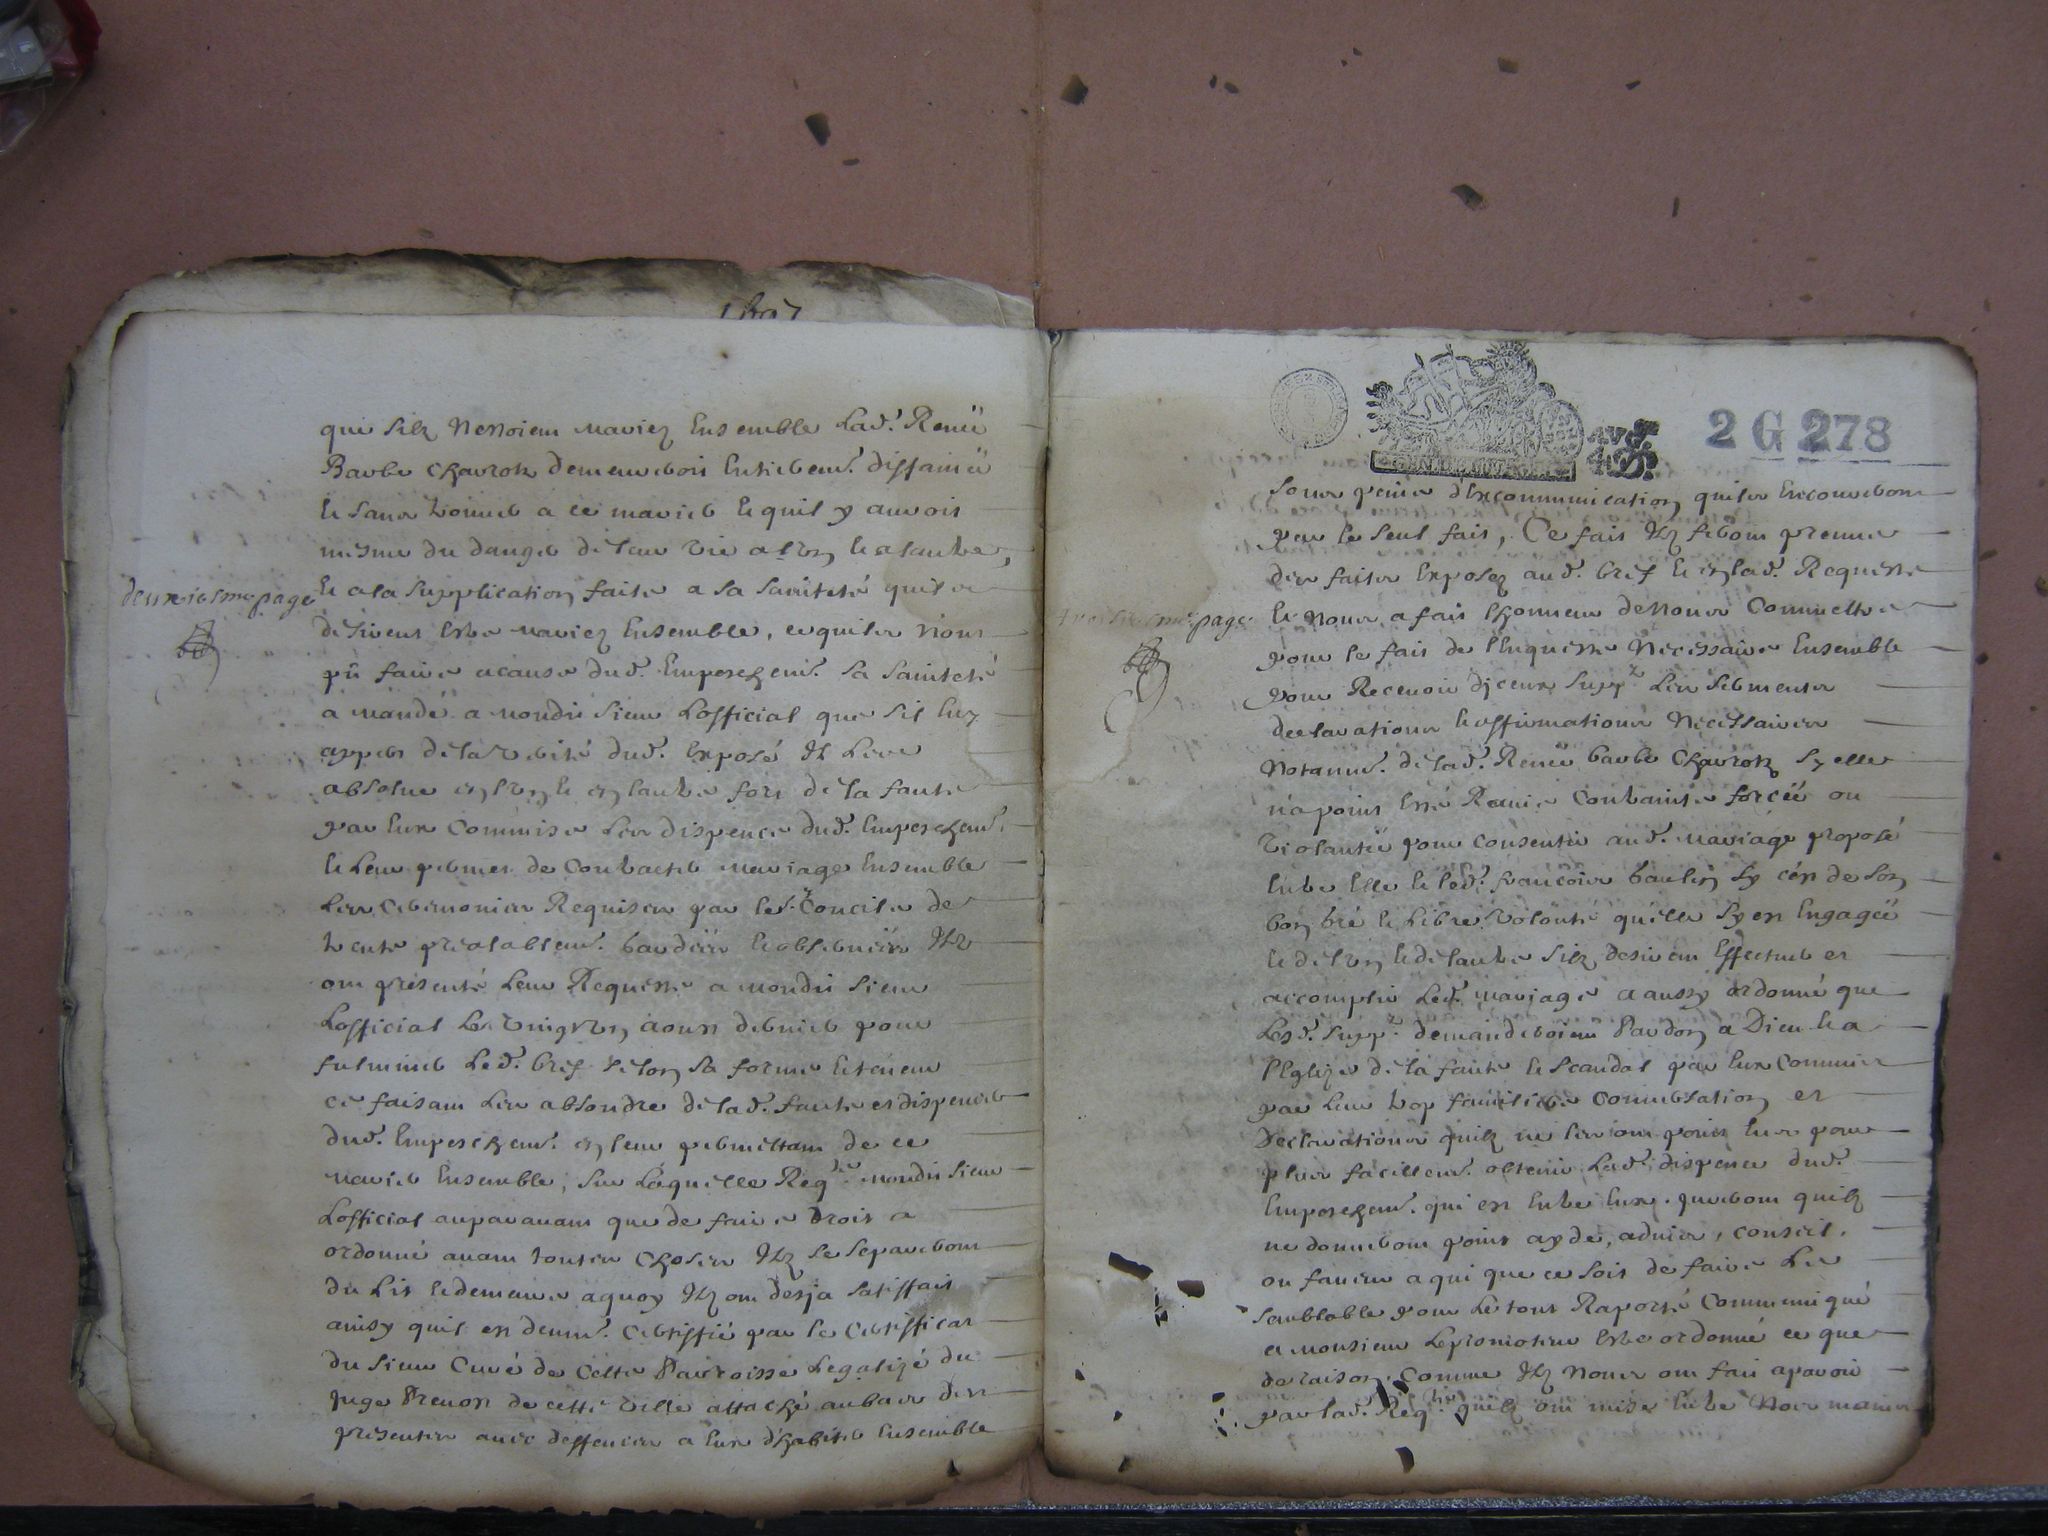 que silz nestoient mariez Ensemble Lad. Renée
Barbe Charron demeureroit Entierem. diffamée
et sans trouver a ce marier et quil y auroit
mesme du danger de leur vie a lun et a lautre,
deuxiesme page
et a la supplication faite a sa sainteté quils
desirent estre mariez Ensemble, ce quils nont
pû faire a cause dud. Empeschem. sa sainteté
a mandé a mondit sieur Lofficial que sil luy
appert de la verité dud. Exposé Il Les
absolve en lun et en lautre fort de la faute
par Eux Commise Les dispence dud. Empeschem.
et Leur permet de Contracter mariage Ensemble
Les Ceremonies Requises par le St. Concile de
trente prealablem. gardées et observées Ilz
ont presenté Leur Requeste a mondit sieur
Lofficial Le vingt un aoust dernier pour
fulminer Led. bref selon sa forme et teneur
ce faisant Les absoudre de lad. faute et dispencer
dud. Empeschem. en leur permettant de ce
marier Ensemble, sur Laquelle Reqte. mondit sieur
Lofficial auparavant que de faire droit a
ordonné avant toutes choses Ilz se separeront
du Lit et demeure a quoy Ilz ont desja satisfait
ainsy quil est deum. certiffié par le certifficat
du sieur Curé de Cette Parroisse Legalizé du
juge Prevost de cette ville attaché au bas des
presentes avec deffences a Eux d'habiter Ensemble
2 G 278
sous peine d'Excommunication quils Encoureront
par le seul fait, Ce fait Ilz feront preuve
des faits Exposez aud. bref et en lad. Requeste
troisiesme page
et nous a fait lhonneur de nous Commettre
pour le fait de l'Enqueste Necessaire Ensemble
pour Recevoir d'iceux supp. Les serments
declarations et affirmations Necessaires
Notamm. de lad. Renée barbe Charron sy elle
n'a point Esté Ravie Contrainte forcée ou
violantée pour consentir aud. mariage proposé
Entre Elle et led. francois baulin sy c'est de son
bon gré et Libre volonté quelle sy est Engagée
et de lun et de lautre silz desirent Effectuer et
accomplir Led. mariage a aussy ordonné que
Lesd. supp. demanderoient Pardon a Dieu et a
l'Eglize de la faute et scandal par Eux Commis
par leur trop familiere conversation et
declarations quilz ne les ont point Eus pour
plus facillem. obtenir Lad. dispence dud.
Empeschem. qui est Entre Eux. jureront quilz
ne donneront point ayde, advies, conseil,
ou faveur a qui que ce soit de faire Le
semblable pour Le tout Raporté Communiqué
a Monsieur Lepromoteur Estre ordonné ce que
de raison Comme Ilz Nous ont fait aparoir
par lad. Reqte. quilz ont mise Entre Nos mains